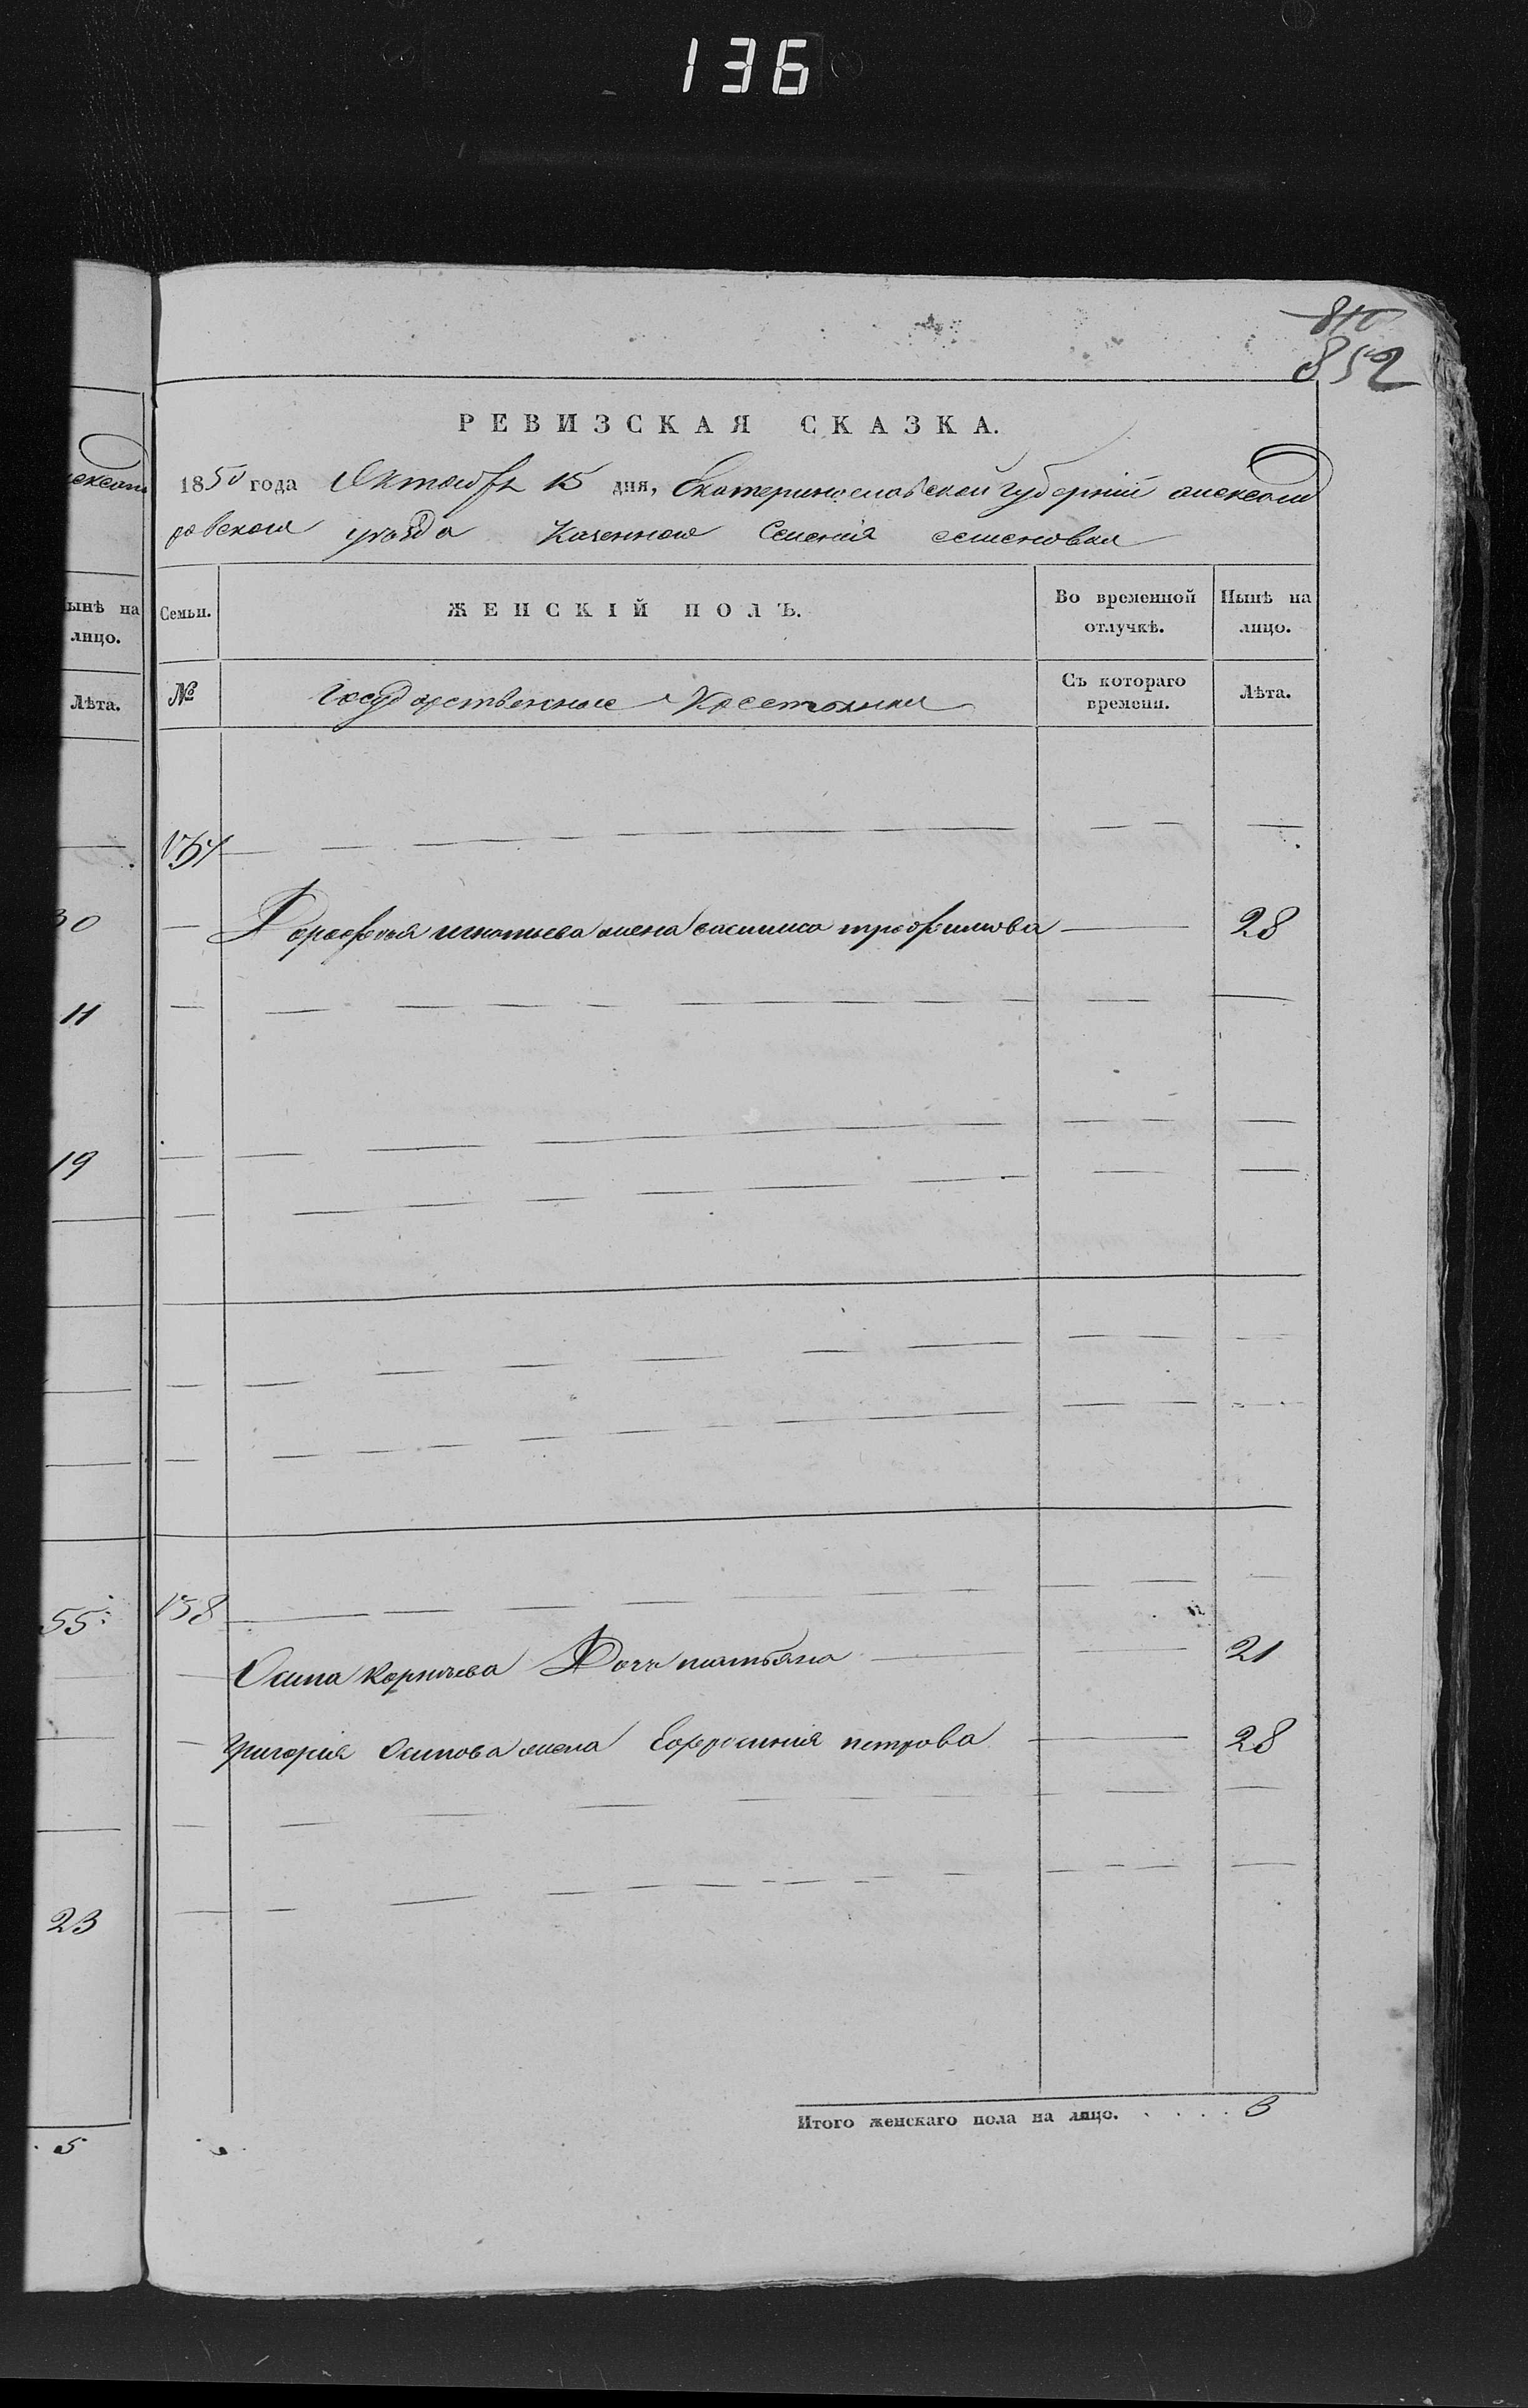 136
810
852
РЕВИЗСКАЯ СКАЗКА.
1850 года Октября 15 дня, Екатеринославской губернии александ
ровскога уезда Казенного Селения семеновки
Семьи.
ЖЕНСКІЙ ПОЛЪ.
Во временной отлучкѣ.
Нынѣ на лицо.
№
Государственные Крестьяне
Съ котораго времени.
Лѣта.
Дорофея игнатьева жена василиса трофимова 28
158
Осипа корнеева Дочь татьяна 21
Григория Осипова жена Ефросиния петрова 28
Итого женскаго пола на лицо. . . . . 3
ександ
ынѣ на
лицо.
Лѣта.
30
11
19
55
23
5